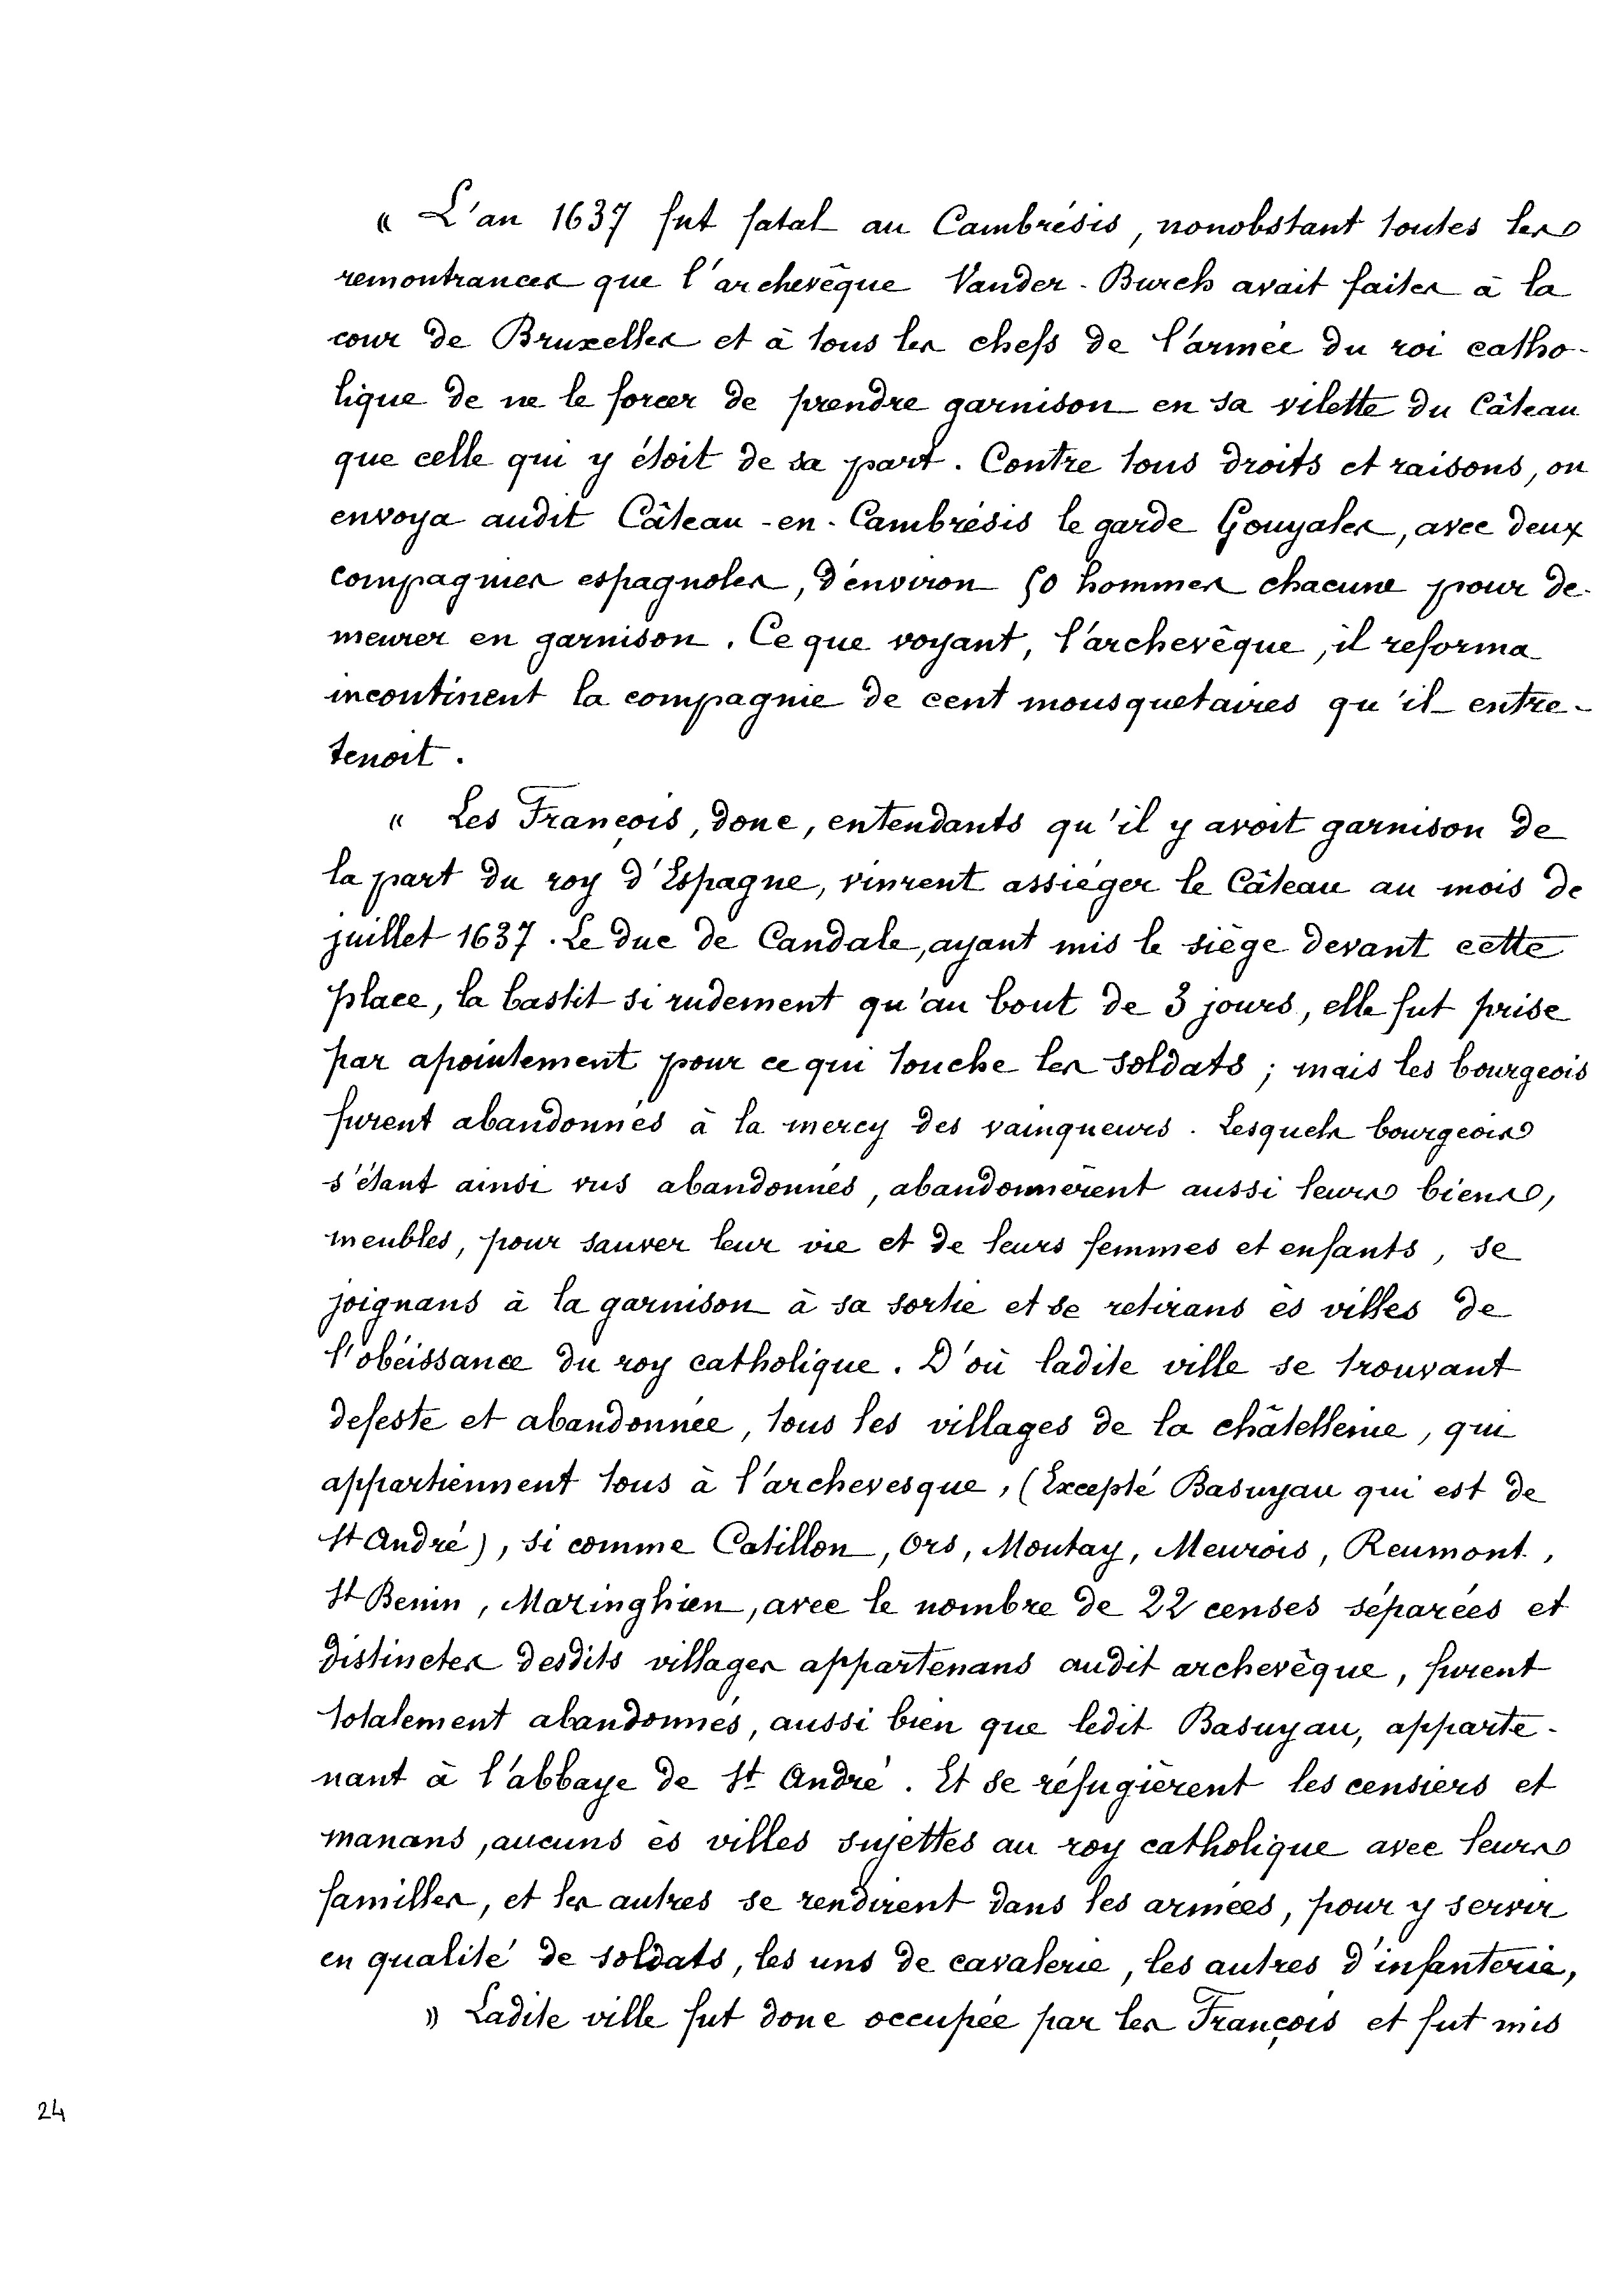 « L'an 1637 fut fatal au Cambrésis, nonobstant toutes les
remontrances que l'archevêque Vander-Burch avait faites à la
cour de Bruxelles et à tous les chefs de l'armée du roi catho-
lique de ne le forcer de prendre garnison en sa vilette du Câteau
que celle qui y étoit de sa part. Contre tous droits et raisons, on
envoya audit Câteau-en-Cambrésis le garde Gouyales, avec deux
compagnies espagnoles, d'environ 50 hommes chacune pour de-
meurer en garnison. Ce que voyant, l'archevêque, il reforma
incontinent la compagnie de cent mousquetaires qu'il entre-
tenoit.
« Les François, donc, entendants qu'il y avoit garnison de
la part du roy d'Espagne, vinrent assiéger le Câteau au mois de
juillet 1637. Le duc de Candale, ayant mis le siège devant cette
place, la bastit si rudement qu'au bout de 3 jours, elle fut prise
par apointement pour ce qui touche les soldats ; mais les bourgeois
furent abandonnés à la mercy des vainqueurs. Lesquels bourgeois
s'étant ainsi vus abandonnés, abandonnèrent aussi leurs biens,
meubles, pour sauver leur vie et de leurs femmes et enfants, se
joignans à la garnison à sa sortie et se retirans ès villes de
l'obéissance du roy catholique. D'où ladite ville se trouvant
defeste et abandonnée, tous les villages de la châtellenie, qui
appartiennent tous à l'archevesque, (Excepté Basuyau qui est de
St André), si comme Catillon, Ors, Montay, Meurois, Reumont,
St Benin, Mazinghien, avec le nombre de 22 censes séparées et
distinctes desdits villages appartenans audit archevêque, furent
totalement abandonnés, aussi bien que ledit Basuyau, apparte-
nant à l'abbaye de St André. Et se réfugièrent les censiers et
manans, aucuns ès villes sujettes au roy catholique avec leurs
familles, et les autres se rendirent dans les armées, pour y servir
en qualité de soldats, les uns de cavalerie, les autres d'infanterie,
» Ladite ville fut donc occupée par les François et fut mis
24